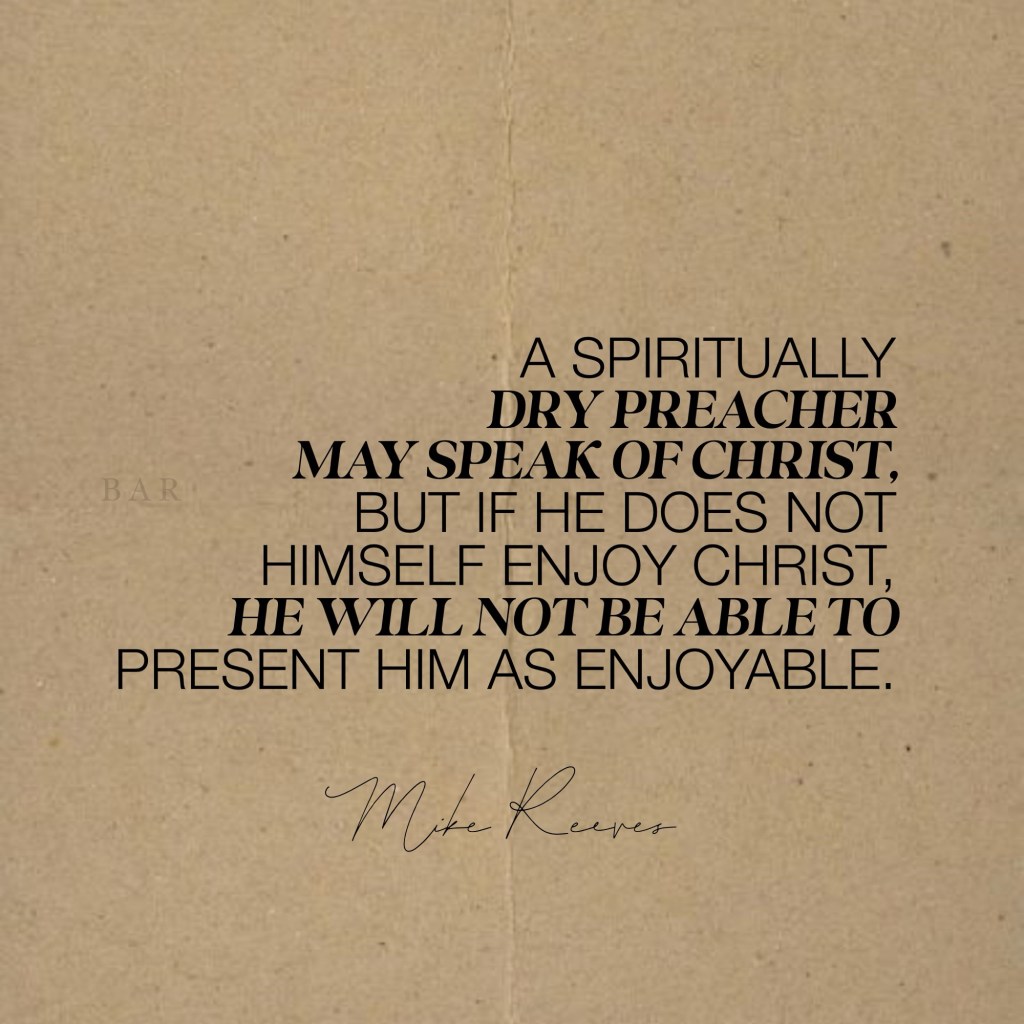 A SPIRITUALLY
DRY PREACHER
MAY SPEAK OF CHRIST,
BAR
BUT IF HE DOES NOT
HIMSELF ENJOY CHRIST,
HE WILL NOT BE ABLE TO
PRESENT HIM AS ENJOYABLE.
Mike Reeves